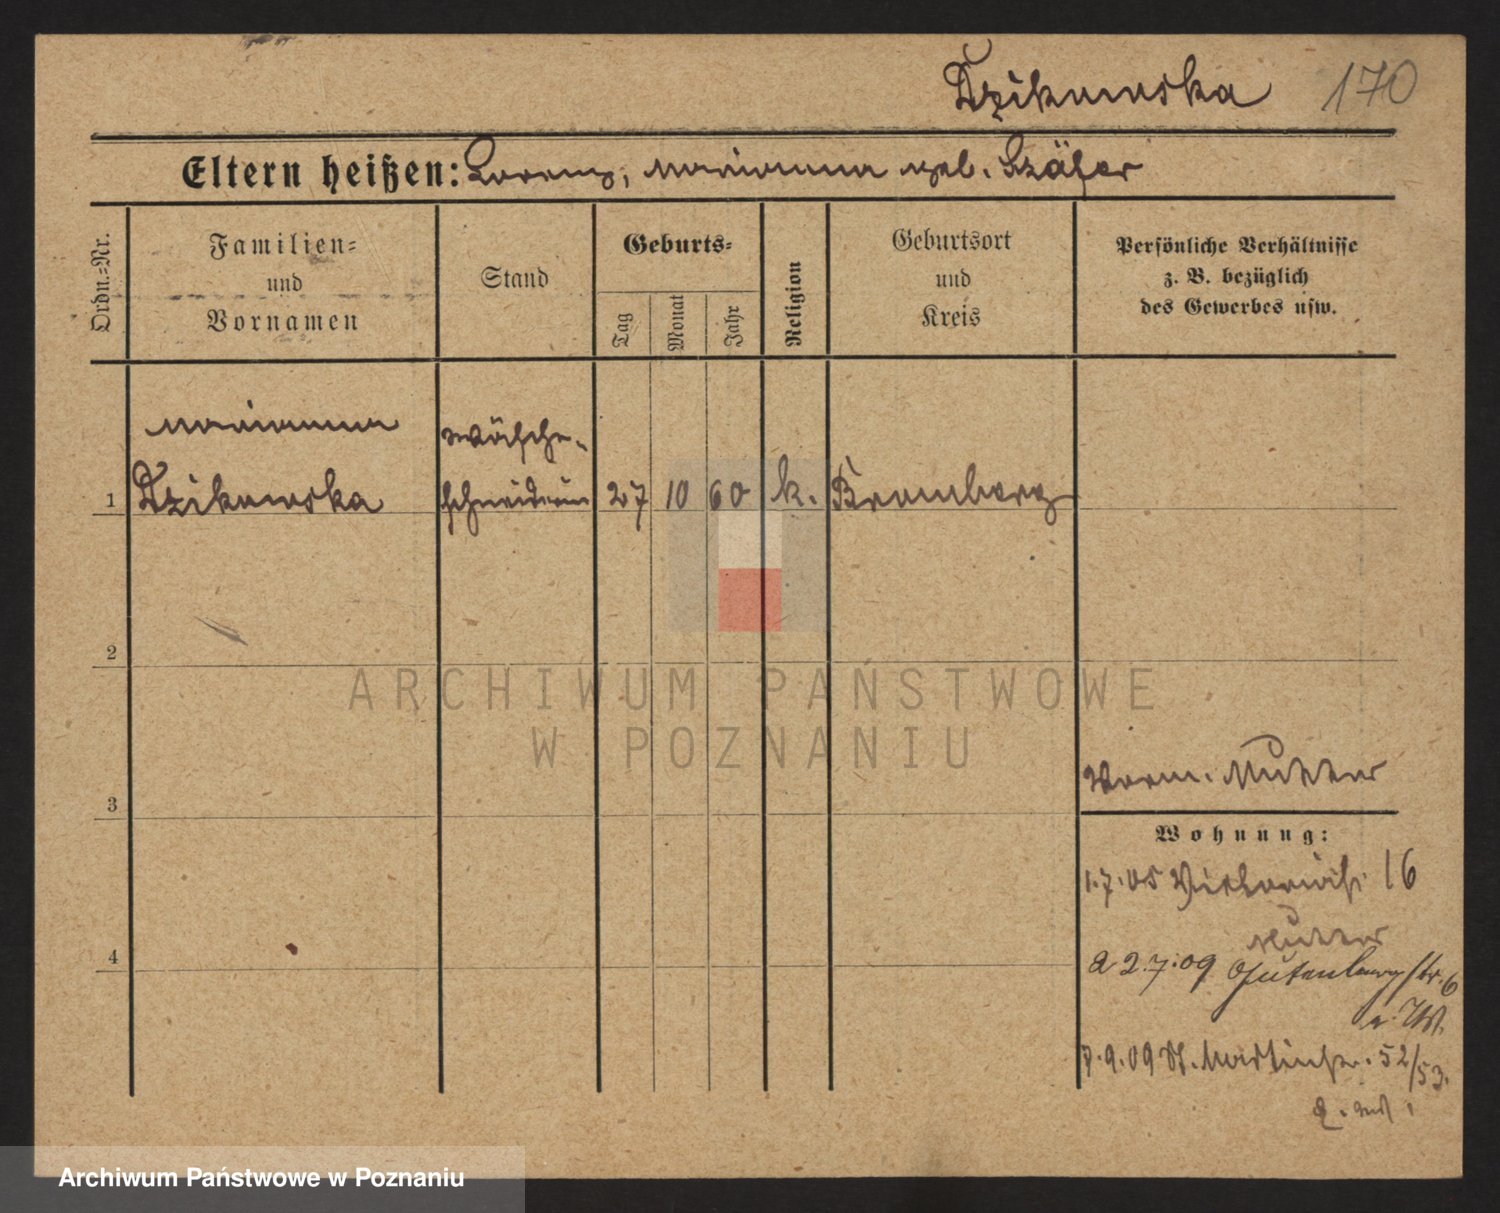 Dzikowska 170
Eltern heißen: Lorenz, Marianna geb. Szäfer
Ordn.-Nr.
Familien-
und
Vornamen
Stand
Geburts-
Tag
Monat
Jahr
Religion
Geburtsort
und
Kreis
Persönliche Verhältnisse
z. B. bezüglich
des Gewerbes usw.
Marianna Wäsche-
1 Dzikowska schneiderin 27 10 60 k. Bromberg
2
ARCHIWUM PAŃSTWOWE
W POZNANIU
Mutter
3
Wohnung:
1.7.05 16
Mutter
4
a 2.7.09 Gutenbergstr. 6
7.9.09 St. Martinstr. 52/53.
Archiwum Państwowe w Poznaniu